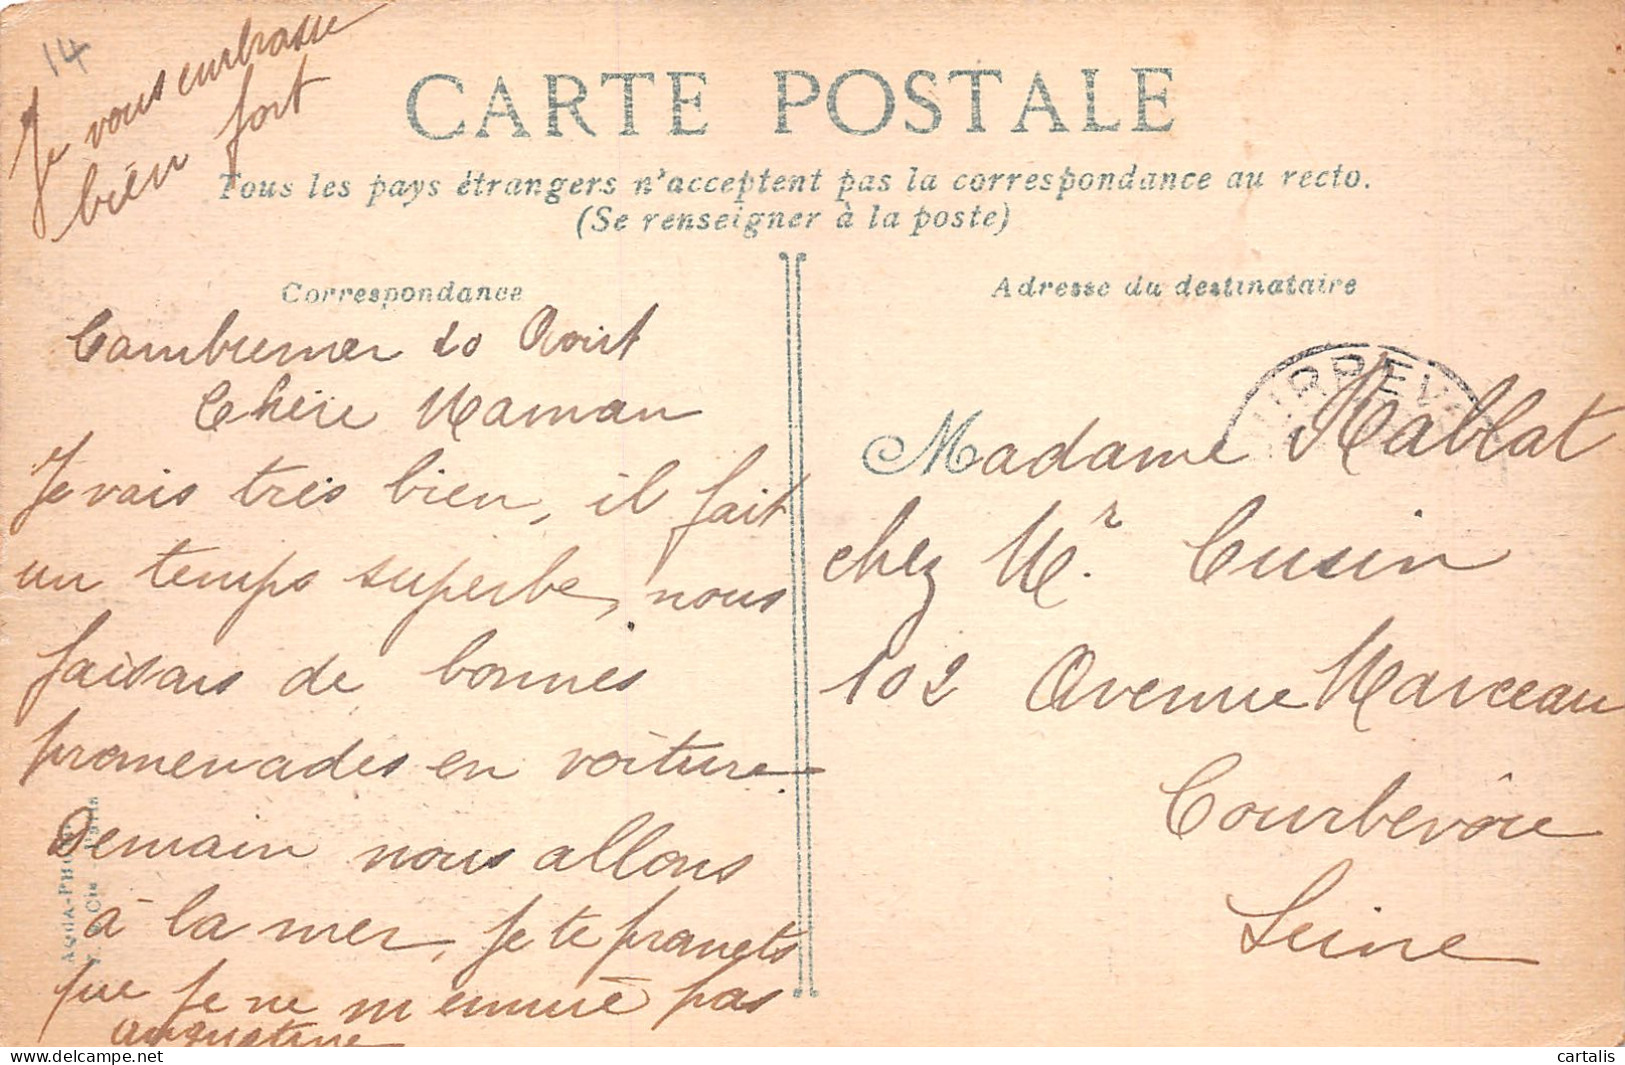 14
Je vous embrasse
bien fort
CARTE POSTALE
Tous les pays étrangers n'acceptent pas la correspondance au recto.
(Se renseigner à la poste)
Correspondance
Cambremer 20 Aout
Chère Maman
Je vais très bien, il fait
un temps superbe, nous
faisons de bonnes
promenades en voiture
Demain nous allons
à la mer, je te promets
que je ne m'ennuie pas
Augustine
Adresse du destinataire
Madame Mablat
chez Mr. Cusin
102 Avenue Marceau
Courbevoie
Seine
AQUA-PHOT
Cie Paris
cartalis